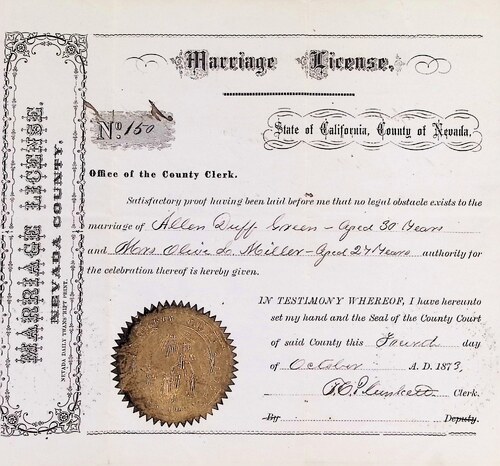 Marriage License.
No 150
State of California, County of Nevada.
Office of the County Clerk.
Satisfactory proof having been laid before me that no legal obstacle exists to the
marriage of Allen Duff Green - Aged 30 Years
and Mrs Olive L. Miller - Aged 27 Years authority for
the celebration thereof is hereby given.
IN TESTIMONY WHEREOF, I have hereunto
set my hand and the Seal of the County Court
of said County this Fourth day
of October A. D. 1873,
Plunkett Clerk.
By Deputy.
MARRIAGE LICENSE.
NEVADA COUNTY.
NEVADA DAILY TRANSCRIPT PRINT.